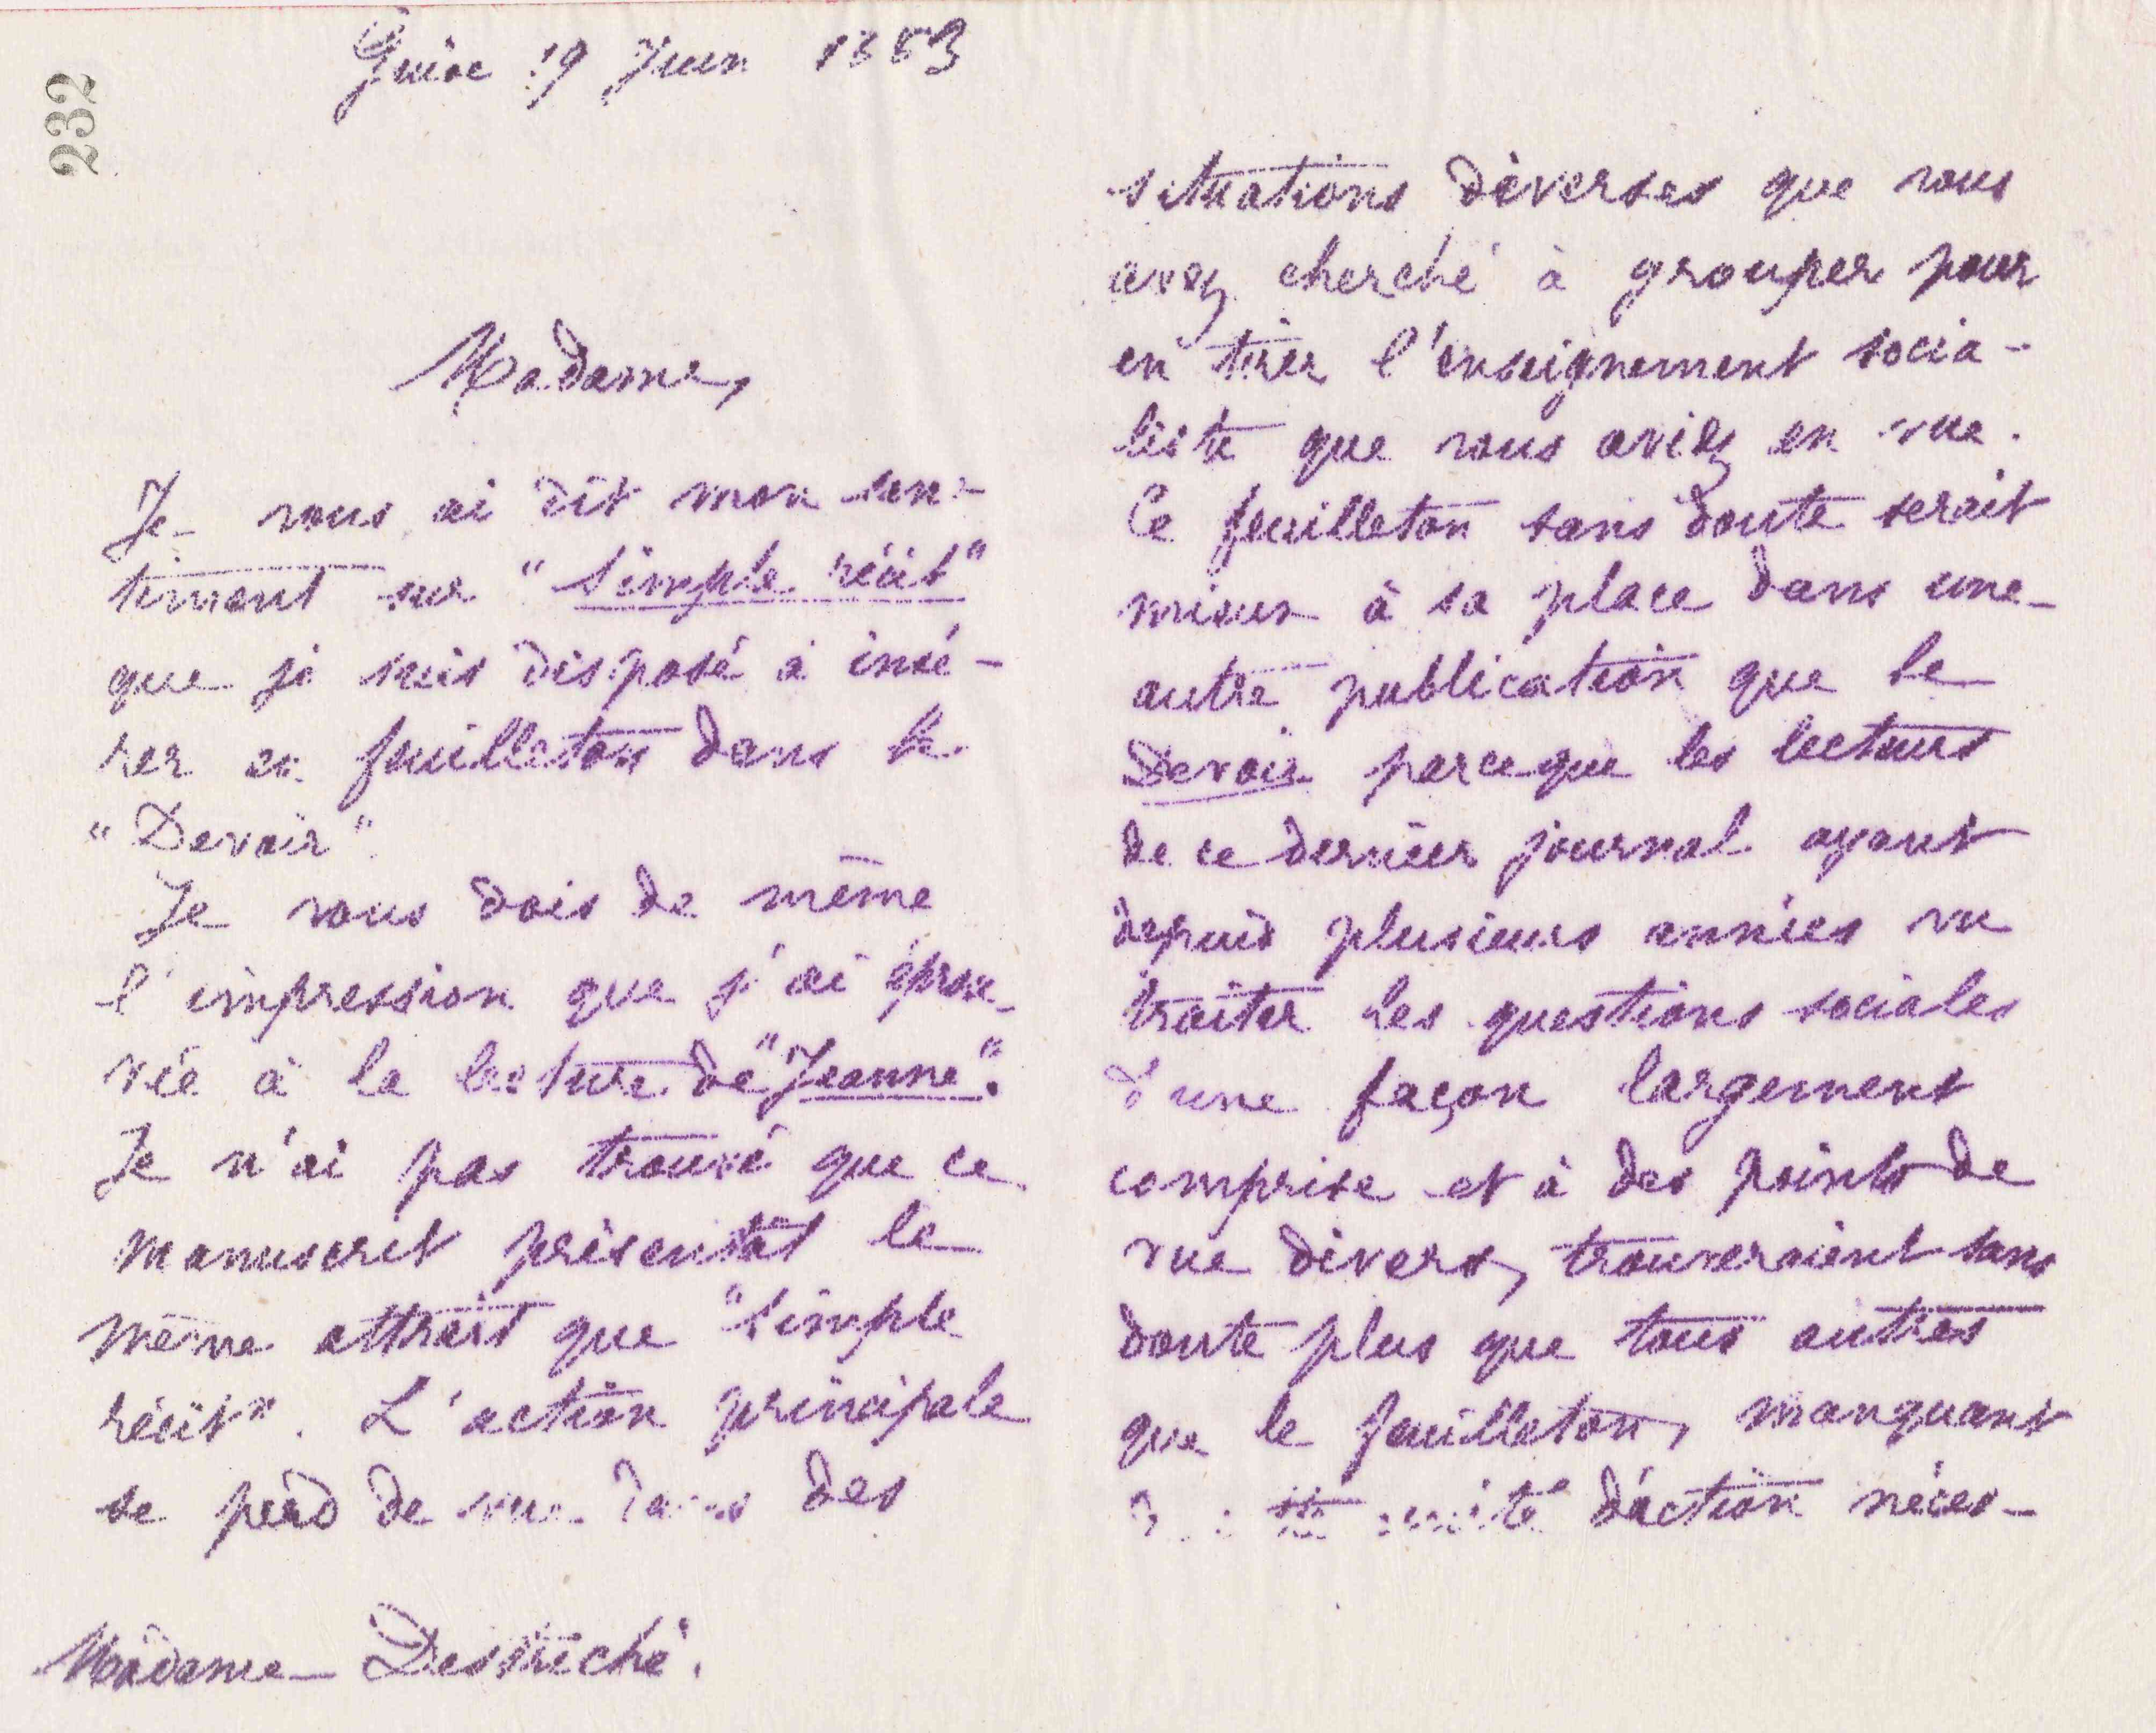 232
Guise 19 Juin 1883
Madame,
Je vous ai dit mon sen-
timent sur "Simple récit"
que je suis disposé à insé-
rer en feuilleton dans le
"Devoir".
Je vous dois de même
l'impression que j'ai éprou-
vée à la lecture de "Jeanne".
Je n'ai pas trouvé que ce
manuscrit présentât le
même attrait que "Simple
récit". L'action principale
se perd de vue dans des
Madame Destriché.
situations diverses que vous
avez cherché à grouper pour
en tirer l'enseignement socia-
liste que vous aviez en vue.
Ce feuilleton sans doute serait
mieux à sa place dans une
autre publication que le
Devoir parceque les lecteurs
de ce dernier journal ayant
depuis plusieurs années vu
traiter les questions sociales
d'une façon largement
comprise et à des points de
vue divers, trouveraient sans
doute plus que tous autres
que le feuilleton, manquant
unité d'action néces-